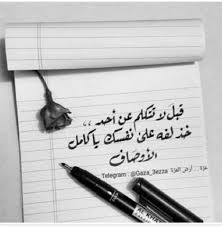 قبل لا تتكلم عن أحد ،،
خذ لفه على نفسك ياكامل
الأوصاف
غزة ... أرض العزة Telegram : @Gaza_3ezza